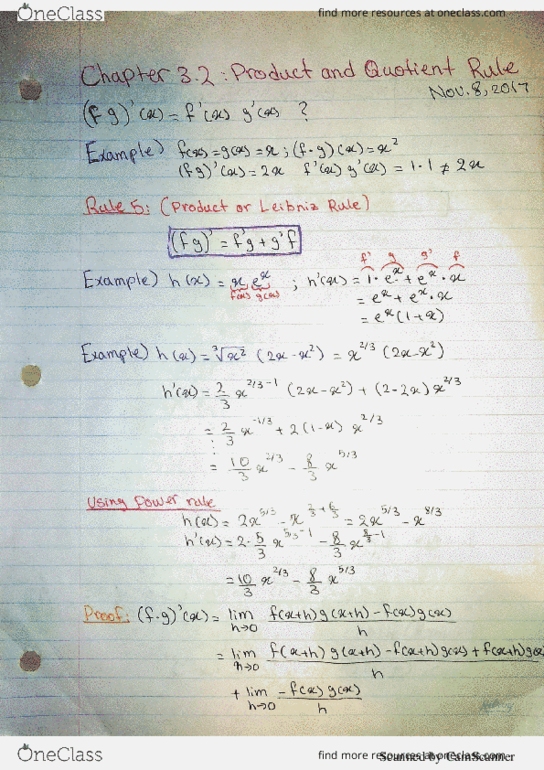 OneClass
find more resources at oneclass.com
Chapter 3.2: Product and Quotient Rule
Nov. 8, 2017
(f g)'(x) = f'(x) g'(x) ?
Example) f(x) = g(x) = x ; (f·g)(x) = x²
(fg)'(x) = 2x f'(x) g'(x) = 1·1 ≠ 2x
Rule 5: (Product or Leibniz Rule)
(fg)' = f'g + g'f
f' g g' f
Example) h(x) = x eˣ ; h'(x) = 1·eˣ + eˣ·x
f(x) g(x)
= eˣ + eˣ·x
= eˣ(1+x)
Example) h(x) = ³√x² (2x-x²) = x^2/3 (2x-x²)
h'(x) = 2/3 x^2/3-1 (2x-x²) + (2-2x) x^2/3
= 2/3 x^-1/3 + 2(1-x) x^2/3
⋮
= 10/3 x^2/3 - 8/3 x^5/3
Using power rule
h(x) = 2x^5/3 - x^2/3+6/3 = 2x^5/3 - x^8/3
h'(x) = 2·5/3 x^5/3-1 - 8/3 x^8/3-1
= 10/3 x^2/3 - 8/3 x^5/3
Proof: (f·g)'(x) = lim h→0 f(x+h)g(x+h) - f(x)g(x) / h
= lim h→0 f(x+h) g(x+h) - f(x+h) g(x) + f(x+h)g(x) / h
+ lim h→0 -f(x) g(x) / h
OneClass
find more resources at oneclass.com
Scanned by CamScanner